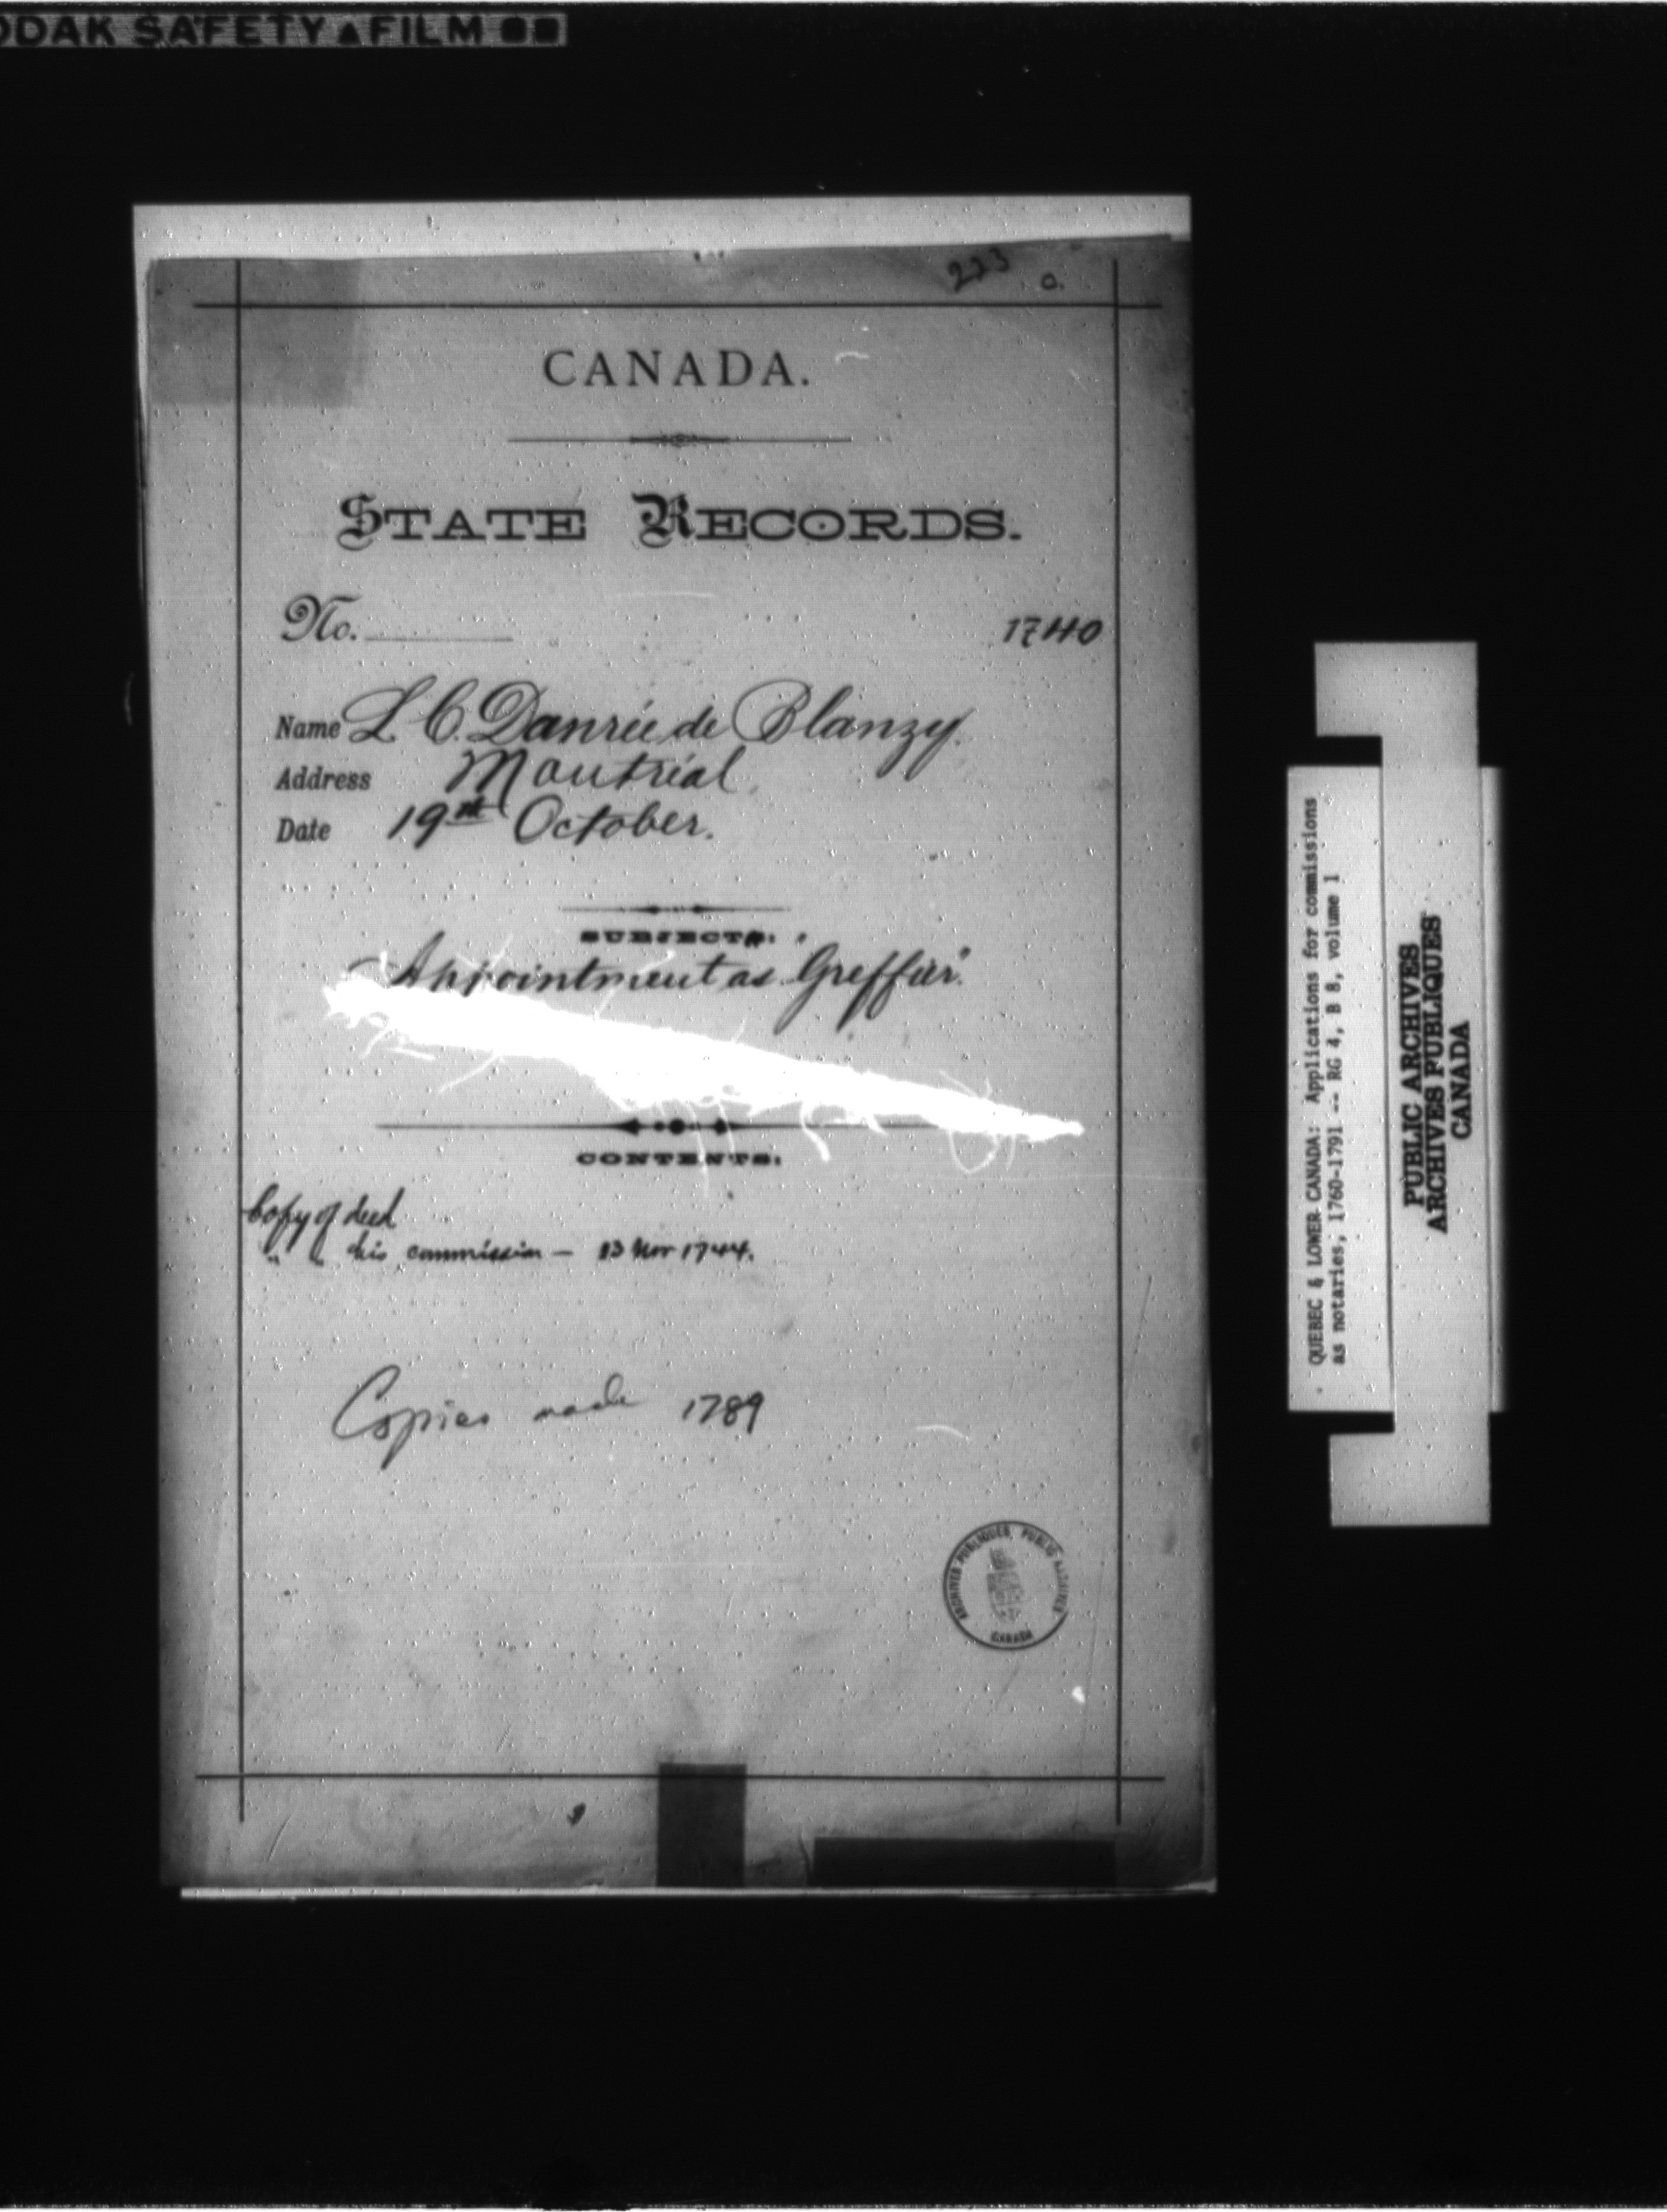 ODAK SAFETY▲FILM
223 0.
CANADA.
STATE RECORDS.
No.
1740
Name L. C. Danrée de Blanzy.
Address Montréal.
Date 19th October.
SUBJECTS:
"Appointment as Greffier".
CONTENTS:
Copy of deed
" " his commission — 23 Nov 1744.
Copies made 1789
ARCHIVES PUBLIQUES PUBLIC ARCHIVES
CANADA
QUEBEC & LOWER CANADA: Applications for commissions
as notaries, 1760-1791 -- RG 4, B 8, volume 1
PUBLIC ARCHIVES
ARCHIVES PUBLIQUES
CANADA